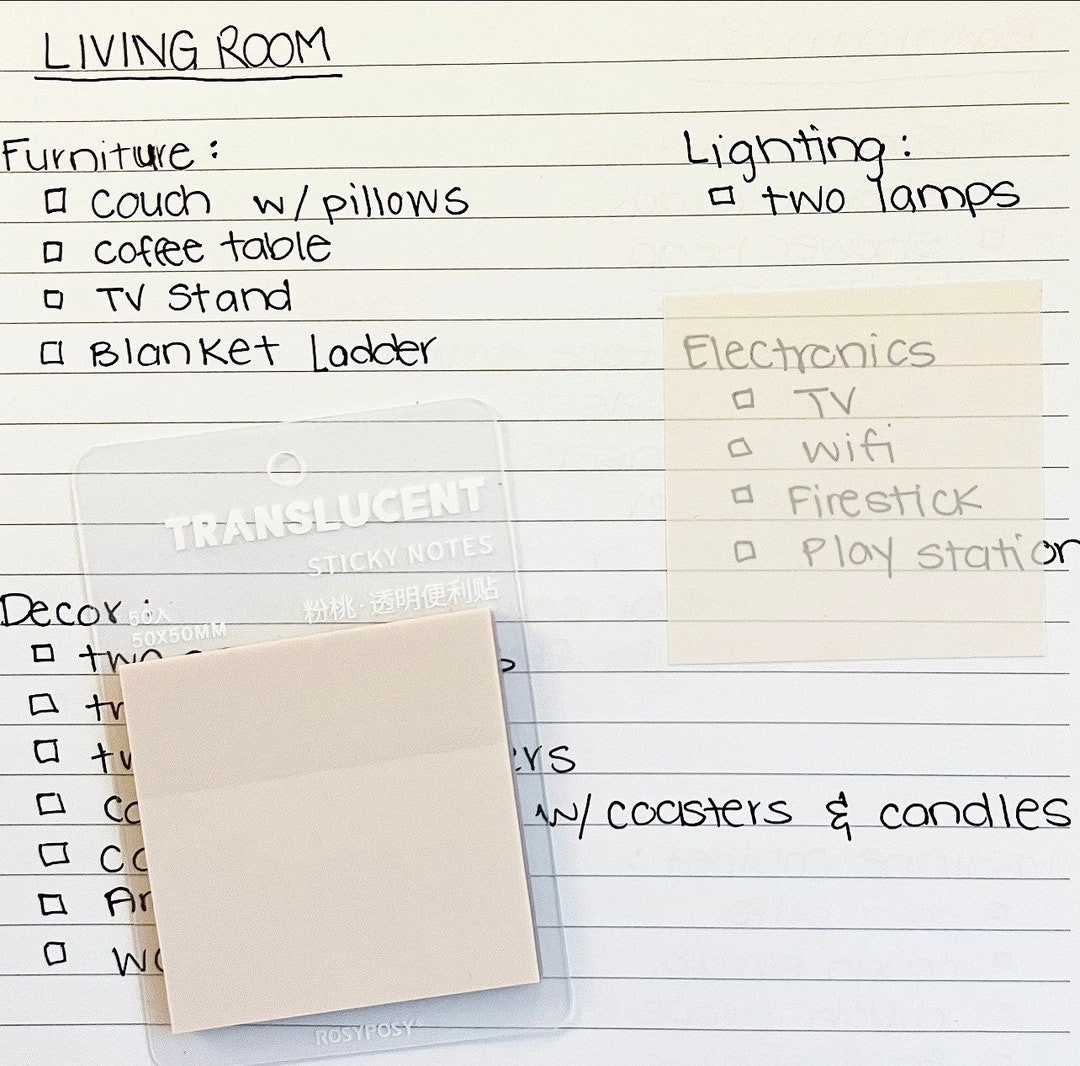 LIVING ROOM
Furniture:
couch w/ pillows
coffee table
TV Stand
Blanket Ladder
Lighting:
two lamps
Electronics
TV
wifi
Firestick
Play station
TRANSLUCENT
STICKY NOTES
粉桃·透明便利贴
50入
50X50MM
Decor:
w/ coasters & candles
ROSYPOSY